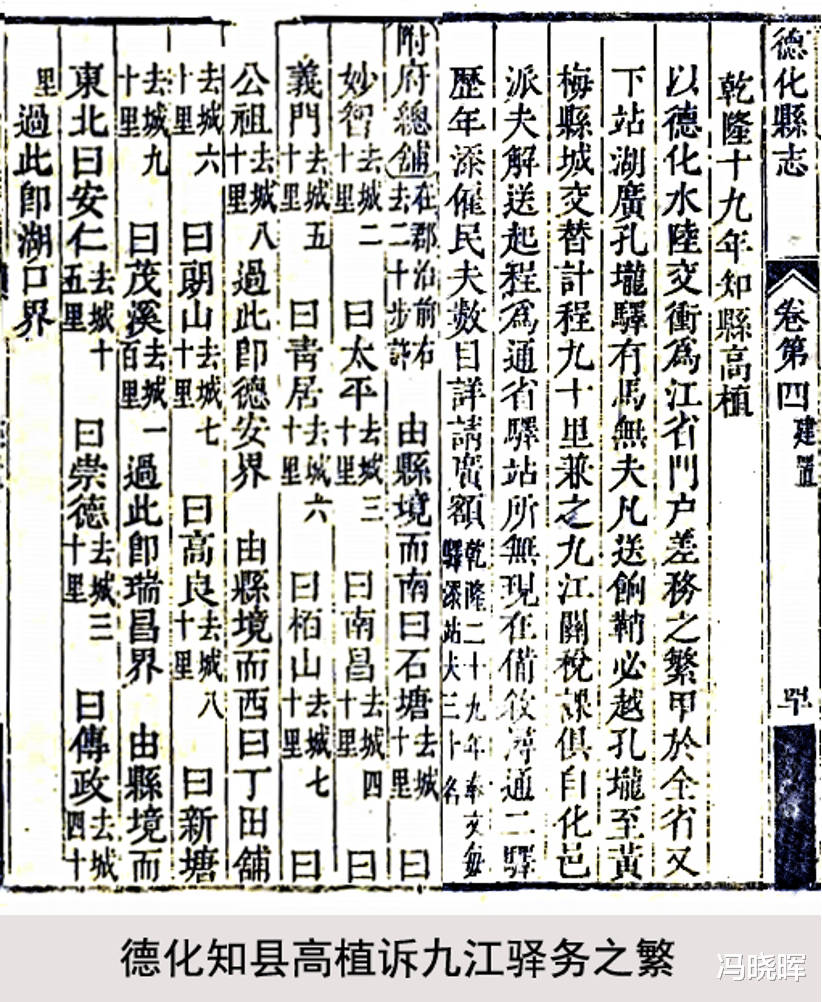 德化縣志 卷第四 建置
乾隆十九年知縣高植
以德化水陸交衝爲江省門户差務之繁甲於全省又
下站湖廣孔壠驛有馬無夫凡送餉鞘必越孔壠至黃
梅縣城交替計程九十里兼之九江關稅課俱自化邑
派夫解送起程爲通省驛站所無現在備敘潯通二驛
歷年添僱民夫数目詳請廣額乾隆二十九年奉文每驛添站夫三十名
附府總舖在郡治前右去二十步許 由縣境而南曰石塘去城十里 曰
妙智去城二十里 曰太平去城三十里 曰南昌去城四十里 曰
義門去城五十里 曰青居去城六十里 曰栢山去城七十里 曰
公祖去城八十里 過此卽德安界 由縣境而西曰丁田舖
去城六十里 曰朝山去城七十里 曰高良去城八十里 曰新塘
去城九十里 曰茂溪去城一百里 過此卽瑞昌界 由縣境而
東北曰安仁去城十五里 曰崇德去城三十里 曰傳政去城四十
里 過此卽湖口界
德化知县高植诉九江驿务之繁
冯晓晖